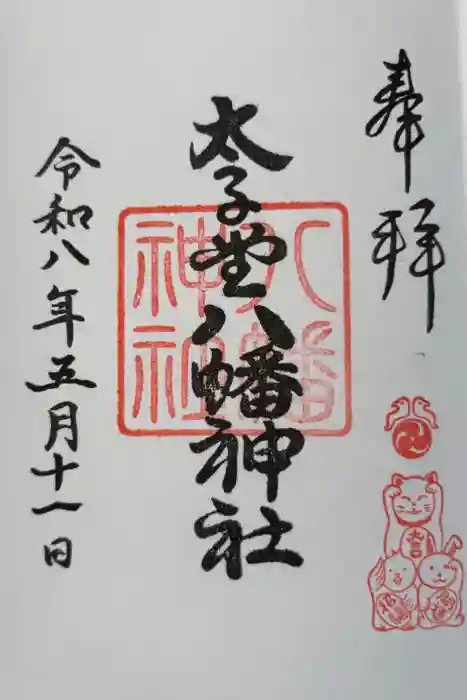 奉拝
太子堂八幡神社
八幡
神社
大吉
令和八年五月十一日